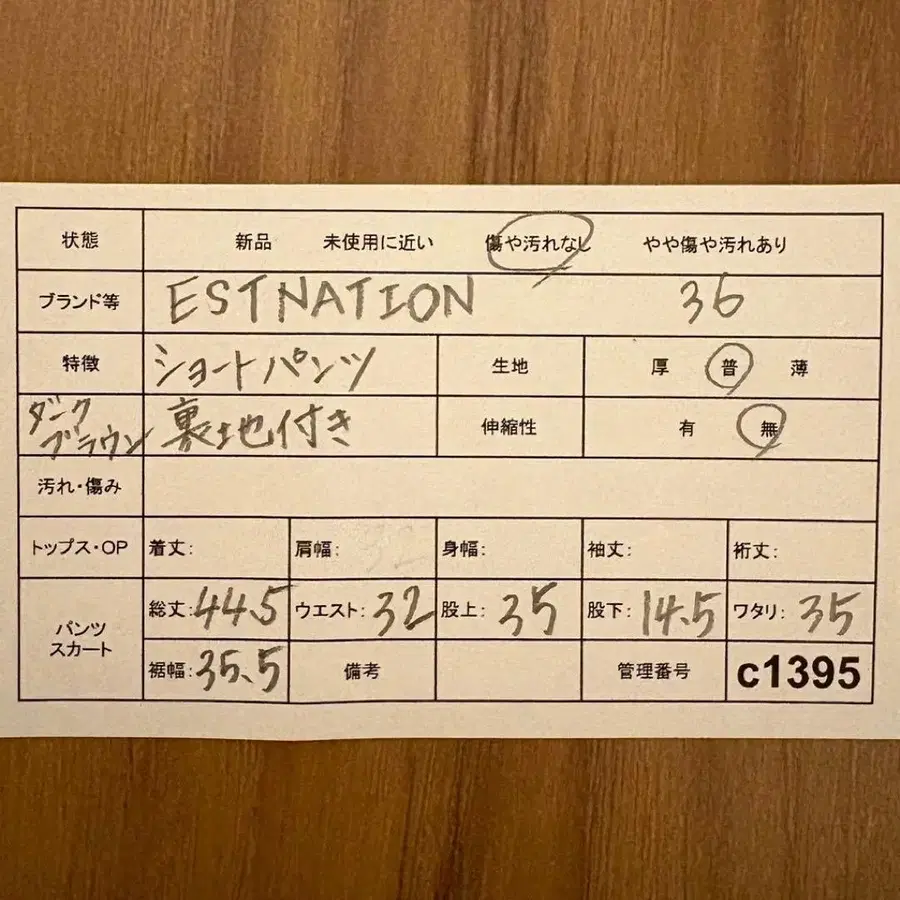 状態 新品 未使用に近い 傷や汚れなし やや傷や汚れあり
ブランド等 ESTNATION 36
特徴 ショートパンツ 生地 厚 普 薄
ダークブラウン 裏地付き 伸縮性 有 無
汚れ・傷み
トップス・OP 着丈: 肩幅: 身幅: 袖丈: 裄丈:
パンツ スカート 総丈: 44.5 ウエスト: 32 股上: 35 股下: 14.5 ワタリ: 35
裾幅: 35.5 備考 管理番号 c1395